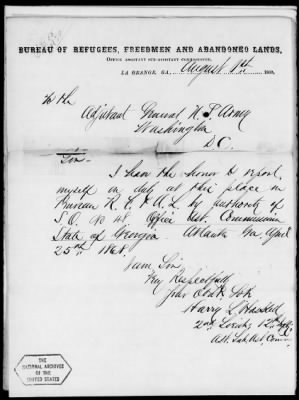 BUREAU OF REFUGEES, FREEDMEN AND ABANDONED LANDS,
OFFICE ASSISTANT SUB-ASSISTANT COMMISSIONER,
LA GRANGE, GA., August 1st 186
To the
Adjutant General U. S. Army
Washington
D.C.
Sir
I have the honor to report
myself on duty at this place in
Bureau R. F. & A. L. by authority of
S.O. No 48 Office Asst. Commissioner
State of Georgia Atlanta Ga. April
25th 1868.
I am, Sir,
Very Respectfully
Your Obdt Svt
Harry L. Haskell
2nd Lieut 12th
Asst. Sub. Ast. Comr
THE
NATIONAL ARCHIVES
OF THE
UNITED STATES